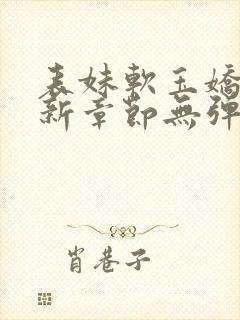 表妹軟玉嬌
新章節無彈
肖巷子